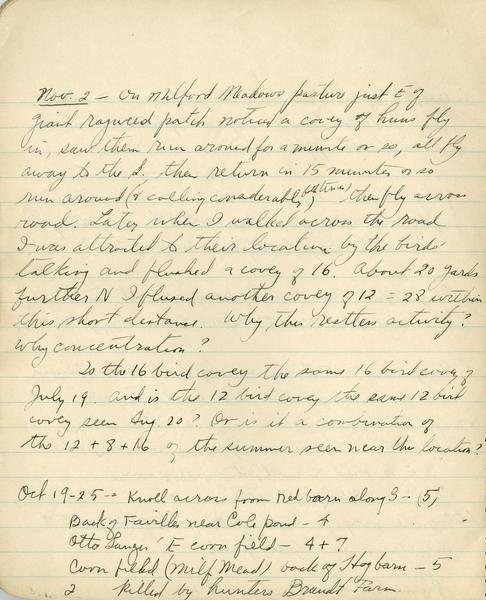 Nov. 2 - On Milford Meadows pasture just E of
giant ragweed patch noticed a covey of huns fly
in, saw them run around for a minute or so, all fly
away to the S. then return in 15 minutes or so
run around (& calling considerably both times) then fly across
road. Later when I walked across the road
I was attracted to their location by the birds'
talking and flushed a covey of 16. About 20 yards
further N I flused another covey of 12 = 28 within
this short distance. Why this restless activity?
Why concentration?
Is the 16 bird covey the same 16 bird covey of
July 19. and is the 12 bird covey the same 12 bird
covey seen Aug. 20? Or is it a combination of
the 12 + 8 + 16 of the summer seen near this location?
Oct 19-25 -- Knoll across from red barn along S - (5)
Back of Favilles near Cole pond - 4
Otto Langer' E corn field - 4 + ?
Corn field (Milf Mead) back of Hogbarn - 5
2 killed by hunters Brandt Farm.